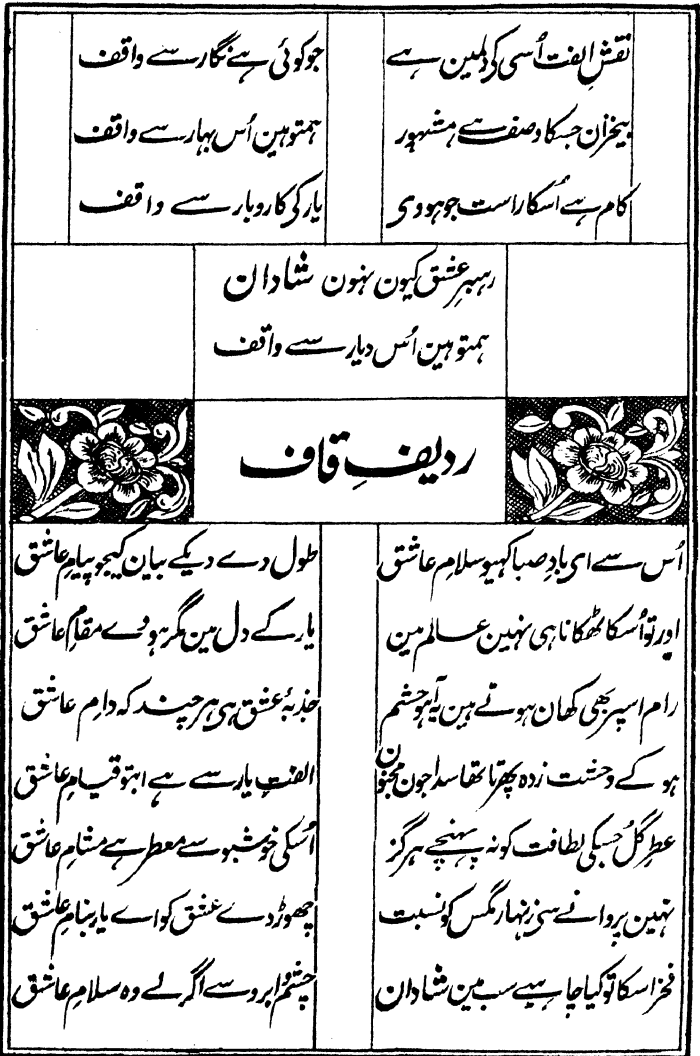 نقشِ الفت اُسی کی دلمین ہے
جو کوئی ہے نگار سے واقف
بیخزان جسکا وصف ہے مشہور
ہمتو ہین اُس بہار سے واقف
کام ہے اُسکا راست جو ہووی
یار کی کاروبار سے واقف
رہبرِ عشق کیون نہون شادان
ہمتو ہین اُس دیار سے واقف
ردیفِ قاف
اُس سے ای بادِ صبا کہیو سلامِ عاشق
طول دے دیکے بیان کیجو پیامِ عاشق
اور تو اُسکا ٹھکانا ہی نہین عالم مین
یار کے دل مین مگر ہووے مقامِ عاشق
رام اسپر بھی کہان ہوتے ہین یہ آہو چشم
جذبۂ عشق ہی ہر چند کہ دامِ عاشق
ہو کے وحشت زدہ پھرتا تھا سدا جون مجنون
الفتِ یار سے ہے ابتو قیامِ عاشق
عطرِ گل جسکی لطافت کو نہ پہنچے ہرگز
اُسکی خوشبو سے معطر ہے مشامِ عاشق
نہین پروانے سی زنہار مگس کو نسبت
چھوڑ دے عشق کو اے یار بنامِ عاشق
فخر اسکا تو کیا چاہیے سب مین شادان
چشم و ابرو سے اگر لے وہ سلامِ عاشق